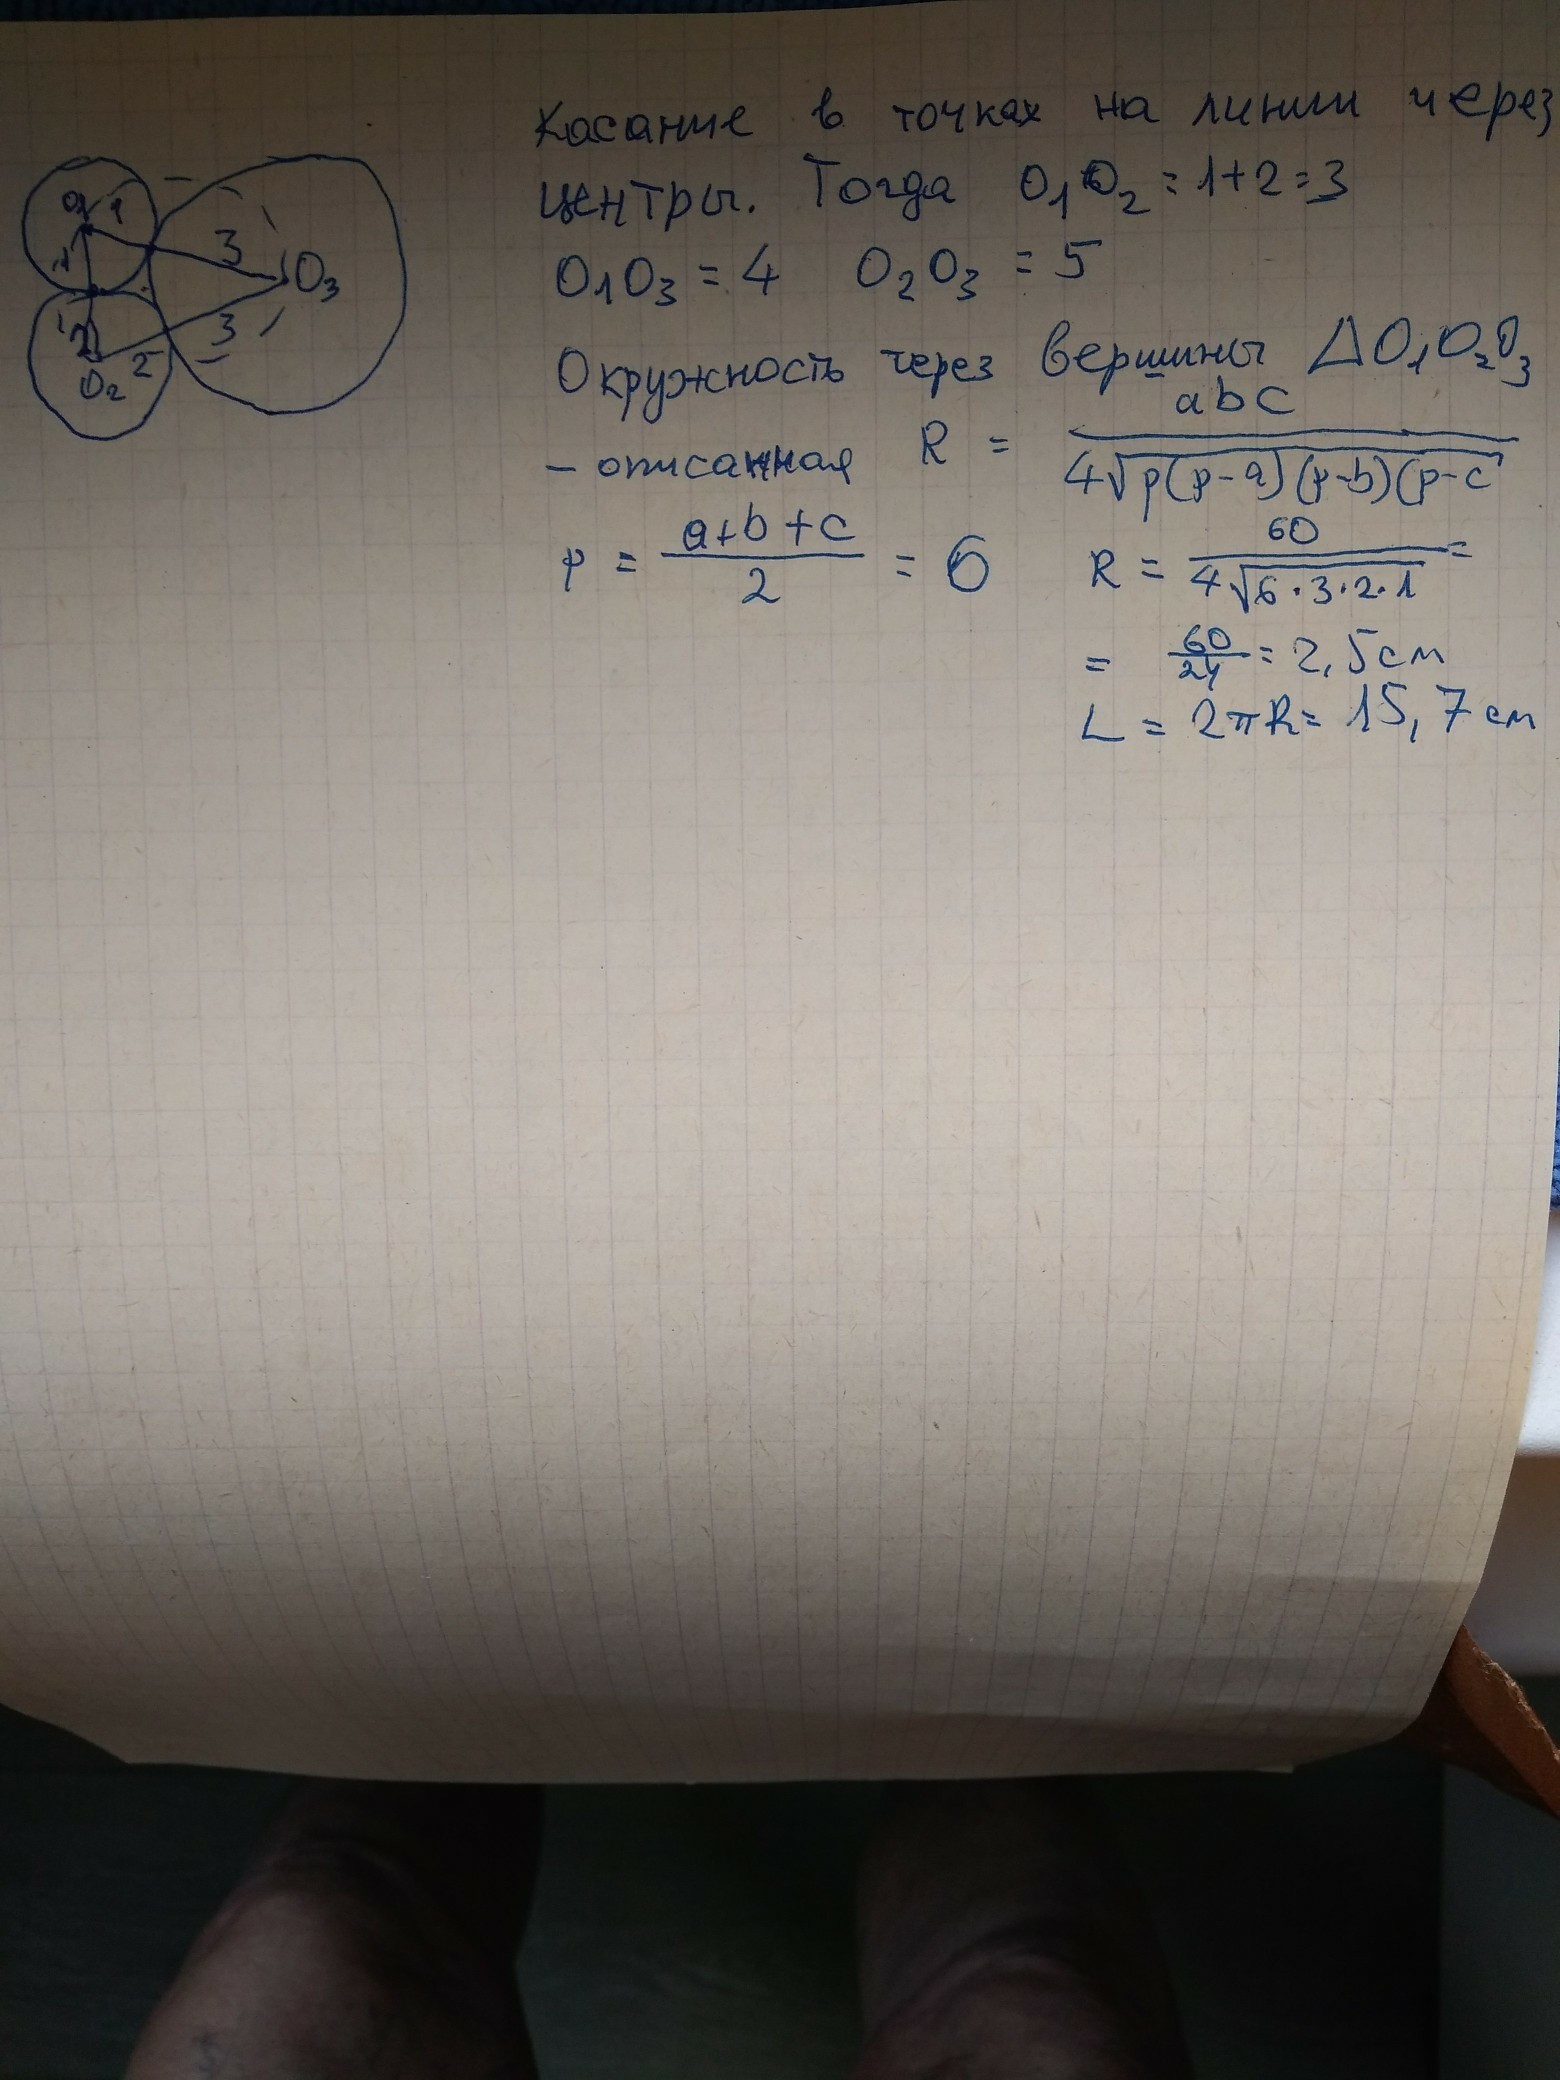 Касание в точках на линии через
центры. Тогда O₁O₂ = 1+2=3
O₁O₃ = 4 O₂O₃ = 5
Окружность через вершины ΔO₁O₂O₃
- описанная R = abc / 4√p(p-a)(p-b)(p-c)
p = a+b+c / 2 = 6 R = 60 / 4√6·3·2·1 =
= 60/24 = 2,5 см
L = 2πR = 15,7 см
O₁ 1
1
3
O₃
2
O₂ 2
3